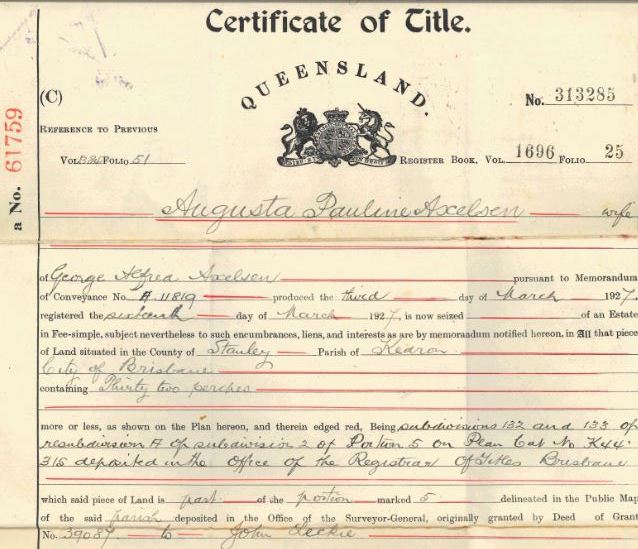 Certificate of Title.
QUEENSLAND.
(C)
No. 313285
REFERENCE TO PREVIOUS
VOL. FOLIO 51
REGISTER BOOK, VOL. 1696 FOLIO 25
a No. 61759
Augusta Pauline Axelsen wife
of George Alfred Axelsen pursuant to Memorandum
of Conveyance No. A 11819 produced the third day of March 1927.
registered the sixteenth day of March 1927, is now seized of an Estate
in Fee-simple, subject nevertheless to such encumbrances, liens, and interests as are by memorandum notified hereon, in All that piece
of Land situated in the County of Stanley Parish of
City of Brisbane
containing Thirty two perches
more or less, as shown on the Plan hereon, and therein edged red, Being subdivisions 132 and 133 of
resubdivision A of subdivision 2 of Portion 5 on Plan Cat No K44.
315 deposited in the Office of the Registrar Of Titles Brisbane
which said piece of Land is part of the portion marked 5 delineated in the Public Map
of the said parish deposited in the Office of the Surveyor-General, originally granted by Deed of Grant
No. 39087 to John Leckie